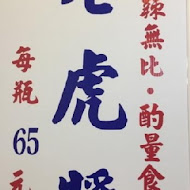 辣無比·酌量食
虎
每瓶65元